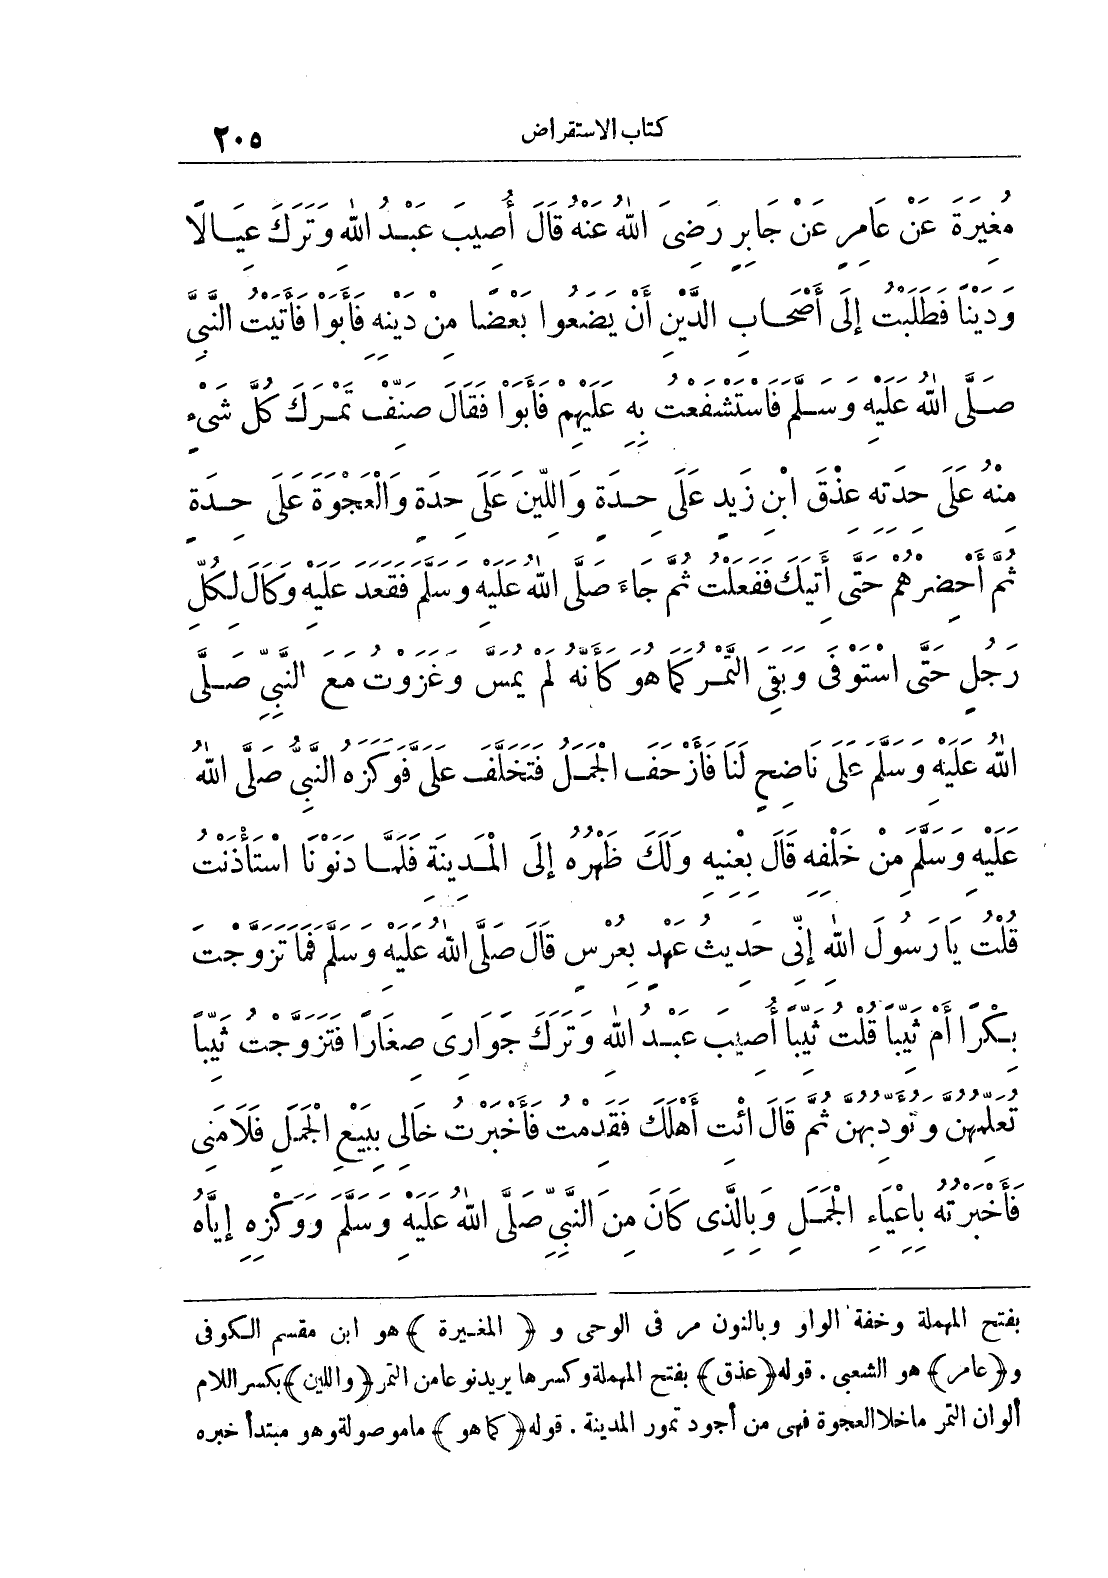 كتاب الاستقراض ٢٠٥
مُغِيرَةَ عَنْ عَامِرٍ عَنْ جَابِرٍ رَضِىَ اللهُ عَنْهُ قَالَ أُصِيبَ عَبْدُ اللهِ وَتَرَكَ عِيَالًا
وَدَيْنًا فَطَلَبْتُ إِلَى أَصْحَابِ الدَّيْنِ أَنْ يَضَعُوا بَعْضًا مِنْ دَيْنِهِ فَأَبَوْا فَأَتَيْتُ النَّبِىَّ
صَلَّى اللهُ عَلَيْهِ وَسَلَّمَ فَاسْتَشْفَعْتُ بِهِ عَلَيْهِمْ فَأَبَوْا فَقَالَ صَنِّفْ تَمْرَكَ كُلَّ شَىْءٍ
مِنْهُ عَلَى حِدَتِهِ عِذْقَ ابْنِ زَيْدٍ عَلَى حِدَةٍ وَاللِّينَ عَلَى حِدَةٍ وَالْعَجْوَةَ عَلَى حِدَةٍ
ثُمَّ أَحْضِرْهُمْ حَتَّى أَتِيَكَ فَفَعَلْتُ ثُمَّ جَاءَ صَلَّى اللهُ عَلَيْهِ وَسَلَّمَ فَقَعَدَ عَلَيْهِ وَكَالَ لِكُلِّ
رَجُلٍ حَتَّى اسْتَوْفَى وَبَقِىَ التَّمْرُ كَمَا هُوَ كَأَنَّهُ لَمْ يُمَسَّ وَغَزَوْتُ مَعَ النَّبِىِّ صَلَّى
اللهُ عَلَيْهِ وَسَلَّمَ عَلَى نَاضِحٍ لَنَا فَأَزْحَفَ الْجَمَلُ فَتَخَلَّفَ عَلَىَّ فَوَكَزَهُ النَّبِىُّ صَلَّى اللهُ
عَلَيْهِ وَسَلَّمَ مِنْ خَلْفِهِ قَالَ بِعْنِيهِ وَلَكَ ظَهْرُهُ إِلَى الْمَدِينَةِ فَلَمَّا دَنَوْنَا اسْتَأْذَنْتُ
قُلْتُ يَا رَسُولَ اللهِ إِنِّى حَدِيثُ عَهْدٍ بِعُرْسٍ قَالَ صَلَّى اللهُ عَلَيْهِ وَسَلَّمَ فَمَا تَزَوَّجْتَ
بِكْرًا أَمْ ثَيِّبًا قُلْتُ ثَيِّبًا أُصِيبَ عَبْدُ اللهِ وَتَرَكَ جَوَارِىَ صِغَارًا فَتَزَوَّجْتُ ثَيِّبًا
تُعَلِّمُهُنَّ وَتُؤَدِّبُهُنَّ ثُمَّ قَالَ ائْتِ أَهْلَكَ فَقَدِمْتُ فَأَخْبَرْتُ خَالِى بِبَيْعِ الْجَمَلِ فَلَامَنِى
فَأَخْبَرْتُهُ بِاِعْيَاءِ الْجَمَلِ وَبِالَّذِى كَانَ مِنَ النَّبِىِّ صَلَّى اللهُ عَلَيْهِ وَسَلَّمَ وَوَكْزِهِ إِيَّاهُ
بفتح المهملة وخفة الواو وبالنون مر فى الوحى و ﴿المغيرة﴾ هو ابن مقسم الكوفى
و﴿عامر﴾ هو الشعبى . قوله ﴿عذق﴾ بفتح المهملة وكسرها يريد نوعا من التمر ﴿واللين﴾ بكسر اللام
ألوان التمر ما خلا العجوة فهى من أجود تمور المدينة . قوله ﴿كما هو﴾ ما موصولة وهو مبتدأ خبره